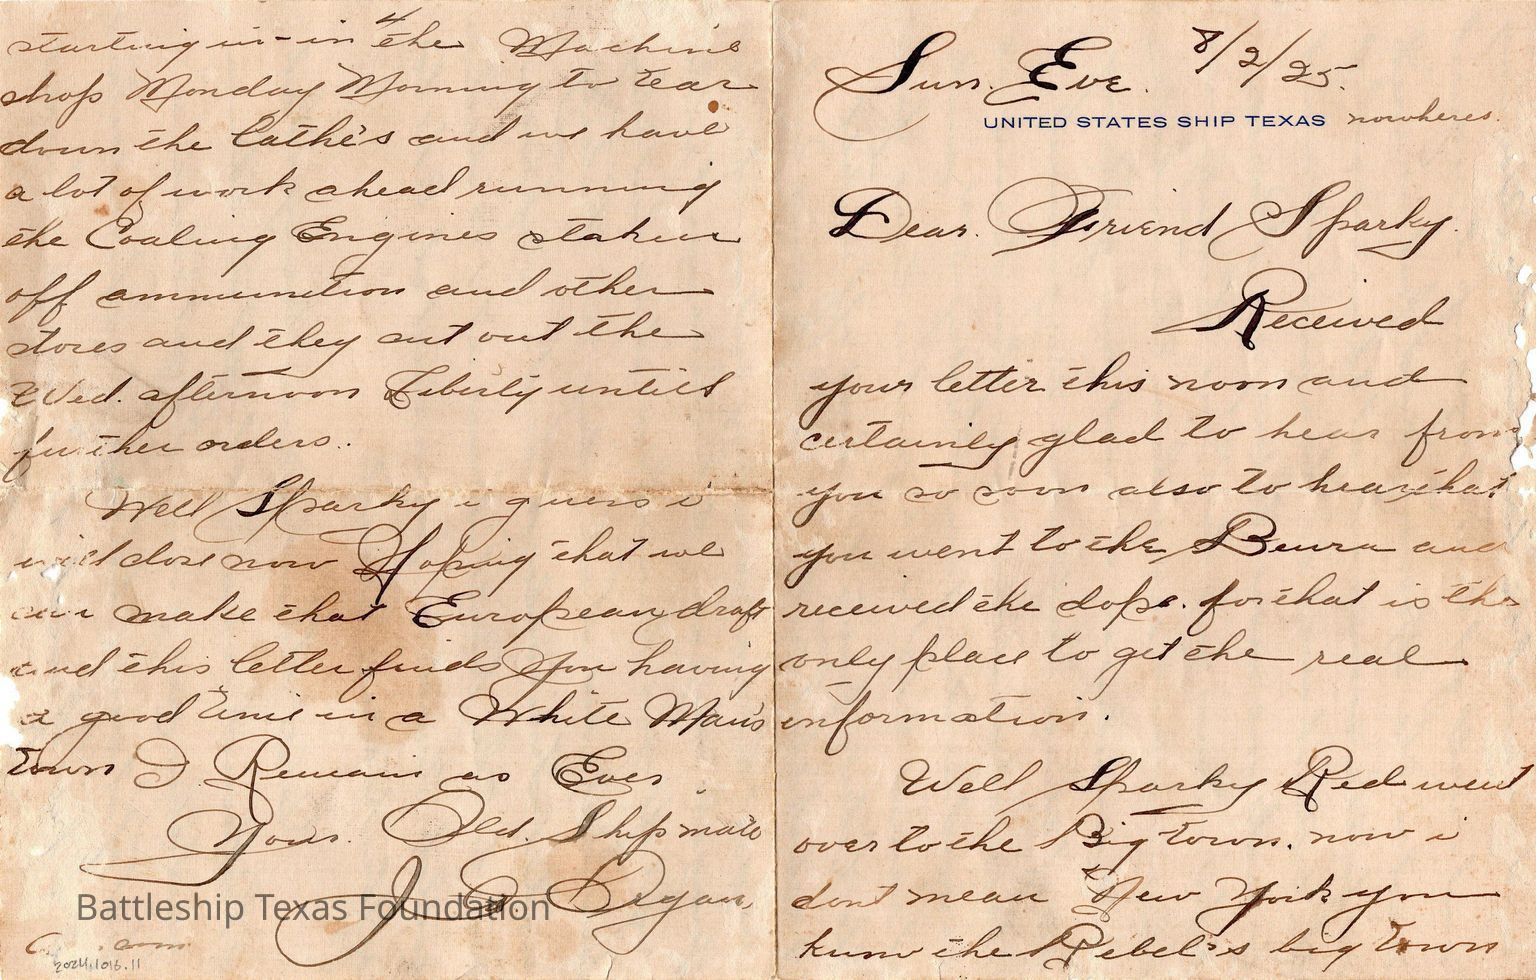 Sun. Eve. 8/2/25.
UNITED STATES SHIP TEXAS nowheres.
Dear. Friend Sparky.
Received
your letter this noon and
certainly glad to hear from
you so soon also to hear that
you went to the Beura and
received the dope. for that is the
only place to get the real
information.
Well Sparky Red went
over to the Big town. now i
dont mean New York you
know the Rebel's big town
4
starting in-in the Machine
shop Monday Morning to tear
down the lathe's and we have
a lot of work ahead running
the Coaling Engines taken
off ammunition and other
stores and they cut out the
Wed. afternoon Liberty untill
further orders.
Well Sparky i guess i
will close now Hoping that we
can make that European draft
and this letter finds you having
a good time in a White Man's
town I Remain as Ever
Your. Old. Shipmate
J Ryan,
Battleship Texas Foundation
2024.1016.11